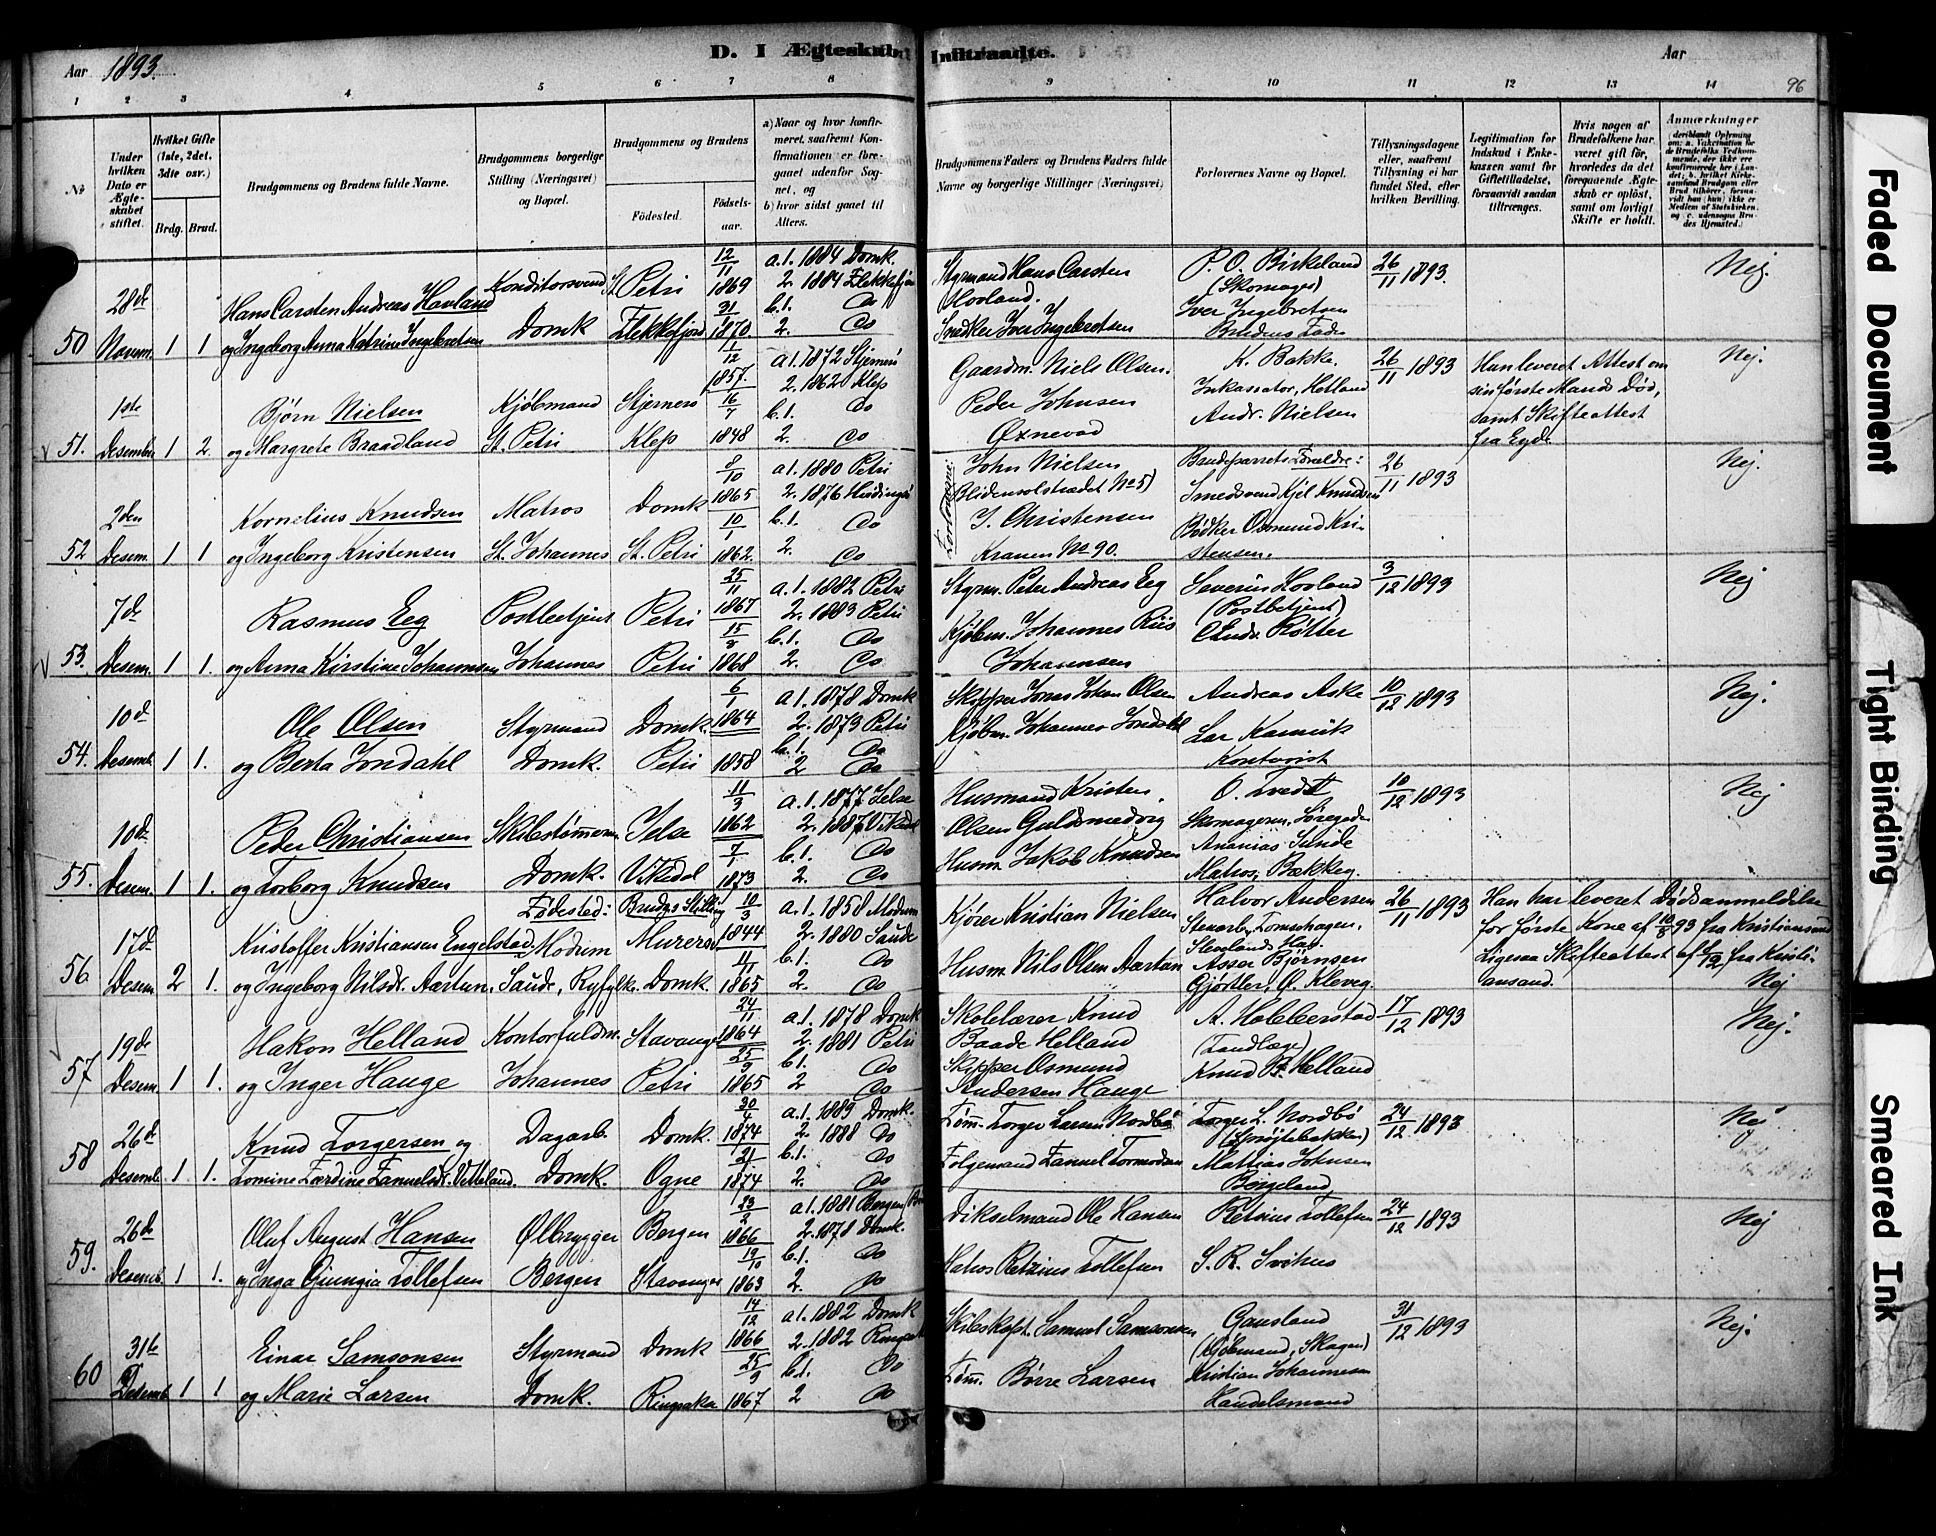 Aar 1893.
D. I Ægteskab Indtraadte.
Aar
1 2 3 4 5 6 7 8 9 10 11 12 13 14 96
No
Under hvilken Dato er Ægteskabet stiftet.
Hvilket Gifte (1ste, 2det, 3dte osv.)
Brdg. Brud.
Brudgommens og Brudens fulde Navne.
Brudgommens borgerlige Stilling (Næringsvei) og Bopæl.
Brudgommens og Brudens
Fødested.
Fødselsaar.
a) Naar og hvor konfirmeret, saafremt Konfirmationen er foregaaet udenfor Sognet, og
b) hvor sidst gaaet til Alters.
Brudgommens Faders og Brudens Faders fulde Navne og borgerlige Stillinger (Næringsvei)
Forlovernes Navne og Bopæl.
Tillysningsdagene eller, saafremt Tillysning ei har fundet Sted, efter hvilken Bevilling.
Legitimation for Indskud i Enkekassen samt for Giftetilladelse, forsaavidt saadan tiltrænges.
Hvis nogen af Brudefolkene har været gift før, hvorledes da det foregaaende Ægteskab er opløst, samt om lovligt Skifte er holdt.
Anmærkninger
28de 12/11 a.1. 1884 Domk.
Hans Carsten Andreas Havland Konditorsvend St. Petri 1869 2. 1884 Flekkefj
31 b.1. Do
50 Novem. 1 1 og Ingeborg Anna Katrine Ingebretsen Domk Flekkefjord 1870. 2. Do
Styrmand Hans Carsten P. O. Birkeland 26/11 1893. Nej.
Hovland. (Skomager)
Snedker Iver Ingebretsen Iver Ingebretsen
Brudens Fader
1/12 a.1. 1872 Stjernerø
1ste Bjørn Nielsen Kjøbmand Stjernerø 1857. 2. 1862 Klep
16/7 b.1. Do
51. Desember 1 2. og Margrete Braadland St. Petri Klep 1848 2. Do
Gaardm. Niels Olsen. K. Bakke. 26/11 1893 Hun leveret Attest om Nej.
Inkassator, Hetland sin første Mands Død,
Peder Johnsen Andr. Nielsen samt Skifteattest
Øxnevad fra Egde
8/10 a.1. 1880 Petri
2den Kornelius Knudsen Matros Domk 1865 2. 1876
10/1 b.1. Do
52 Desem. 1 1 og Ingeborg Kristensen St. Johannes St. Petri 1862. 2. Do
Forloverne:
John Nielsen Brudeparrets Forældre: 26/11 1893 Nej.
(Blidensolstrædet No 5) Smedsvend Kjel Knudsen
J. Christensen Bødker Osmund Kri-
Kranen No 90. stensen.
25/11 a.1. 1882 Petri
7de Rasmus Eeg Postbetjent Petri 1867 2. 1883 Petri
15 b.1. Do
53. Desem. 1 1. og Anna Kirstine Johannsen Johannes Petri 1868 2. Do
Styrm. Peter Andreas Eeg Severin Hovland 3/12 1893 Nej
(Postbetjent)
Kjøbm. Johannes Riis Endr. Røtter
Johannsen
6/1 a.1. 1878 Domk
10de Ole Olsen Styrmand Domk. 1864 2. 1873 Petri
b.1. Do
54. Desemb. 1 1. og Berta Jondahl Domk. Petri 1858 2 Do
Skipper Jonas Johan Olsen Andreas Aske 10/12 1893 Nej.
Kjøbm. Johannes Jondahl
Kontorist
11/3 a.1. 1877 Jelse
10de Peder Christiansen Skibstømmerm. Jelse 1862 2. 1887 Vikedal
7/1 b.1. Do
55. Desem. 1 1. og Torborg Knudsen Domk. Vikedal 1873 2. Do
Husmand Kristen O. Tvedt 10/12 1893 Nej
Olsen Guldsmedvig
Ananias Sunde
Husm. Jakob Knudsen Matros, Bækkeg.
Fødested: Brudens Stilling 10/3 a.1. 1858 Modum
17de Kristoffer Kristiansen Engelstad. Modum Murersv 1844 2. 1880 Saude
11/11 b.1. Do
56 Desem. 2 1. og Ingeborg Nilsdr. Aartun. Saude, Ryfylke. Domk. 1865 2. Do
Kjører Kristian Nielsen Halvor Andersen 26/11 1893 Han har leveret Dødsanmeldelse
for første Kone af 10/8 93 fra Kristiansand
Husm. Nils Olsen Aartun Asser Bjørnsen Ligesaa Skifteattest af fra Kristi-
Gjørtler, Ø. Kleveg. ansand. Nej
24/11 a.1. 1878 Domk
19de Hakon Helland Kontorfuldm. Stavanger 1864 2. 1881 Petri
25 b.1. Do
57 Desem. 1 1. og Inger Hauge Johannes Petri 1865 2 Do
Skolelærer Knud A. Halberstad 17/12 1893 Nej.
Baade Helland (Tandlæge)
Skipper Osmund Knud B. Helland
Andersen Hauge
30/4 a.1. 1889 Domk.
26de Knud Torgersen og Dagarb. Domk. 1874 2. 1888 Do
21 b.1. Do
58 Desemb. 1 1. Tomine Færdine Fanuelsdr. Vetteland. Domk. Ogne 1874 2. Do
Tøm. Torger Larsen Nordbø Torger L. Nordbø 24/12 1893 Nej
(Sprøitebakken)
Følgemand Fanuel Tormodsen Mattias Johnsen
Børgeland
23/2 a.1. 1881 Bergen
26de Oluf August Hansen Ølbrygger Bergen 1866 2. 1878 Domk.
19/10 b.1. Do
59. Desemb. 1 1. og Inga Gjurgia Tollefsen Bergen Stavanger 1863 2. Do
Dikselmand Ole Hansen Retzius Tollefsen 24/12 1893 Nej
Matros Retzius Tollefsen S. R. Svihus
14/12 a.1. 1882 Domk
31te Einar Samsonsen Styrmand Domk 1866 2. 1882 Ringsak
25/9 b.1. Do
60 Desemb. 1 1 og Marie Larsen Domk. Ringsaker 1867 2 Do
Skibskapt. Samuel Samsonsen Gausland 31/12 1893 Nej.
(Kjøbmand, Skagen)
Tøm. Børre Larsen Kristian Johannesen
Handelsmand
Faded Document
Tight Binding
Smeared Ink